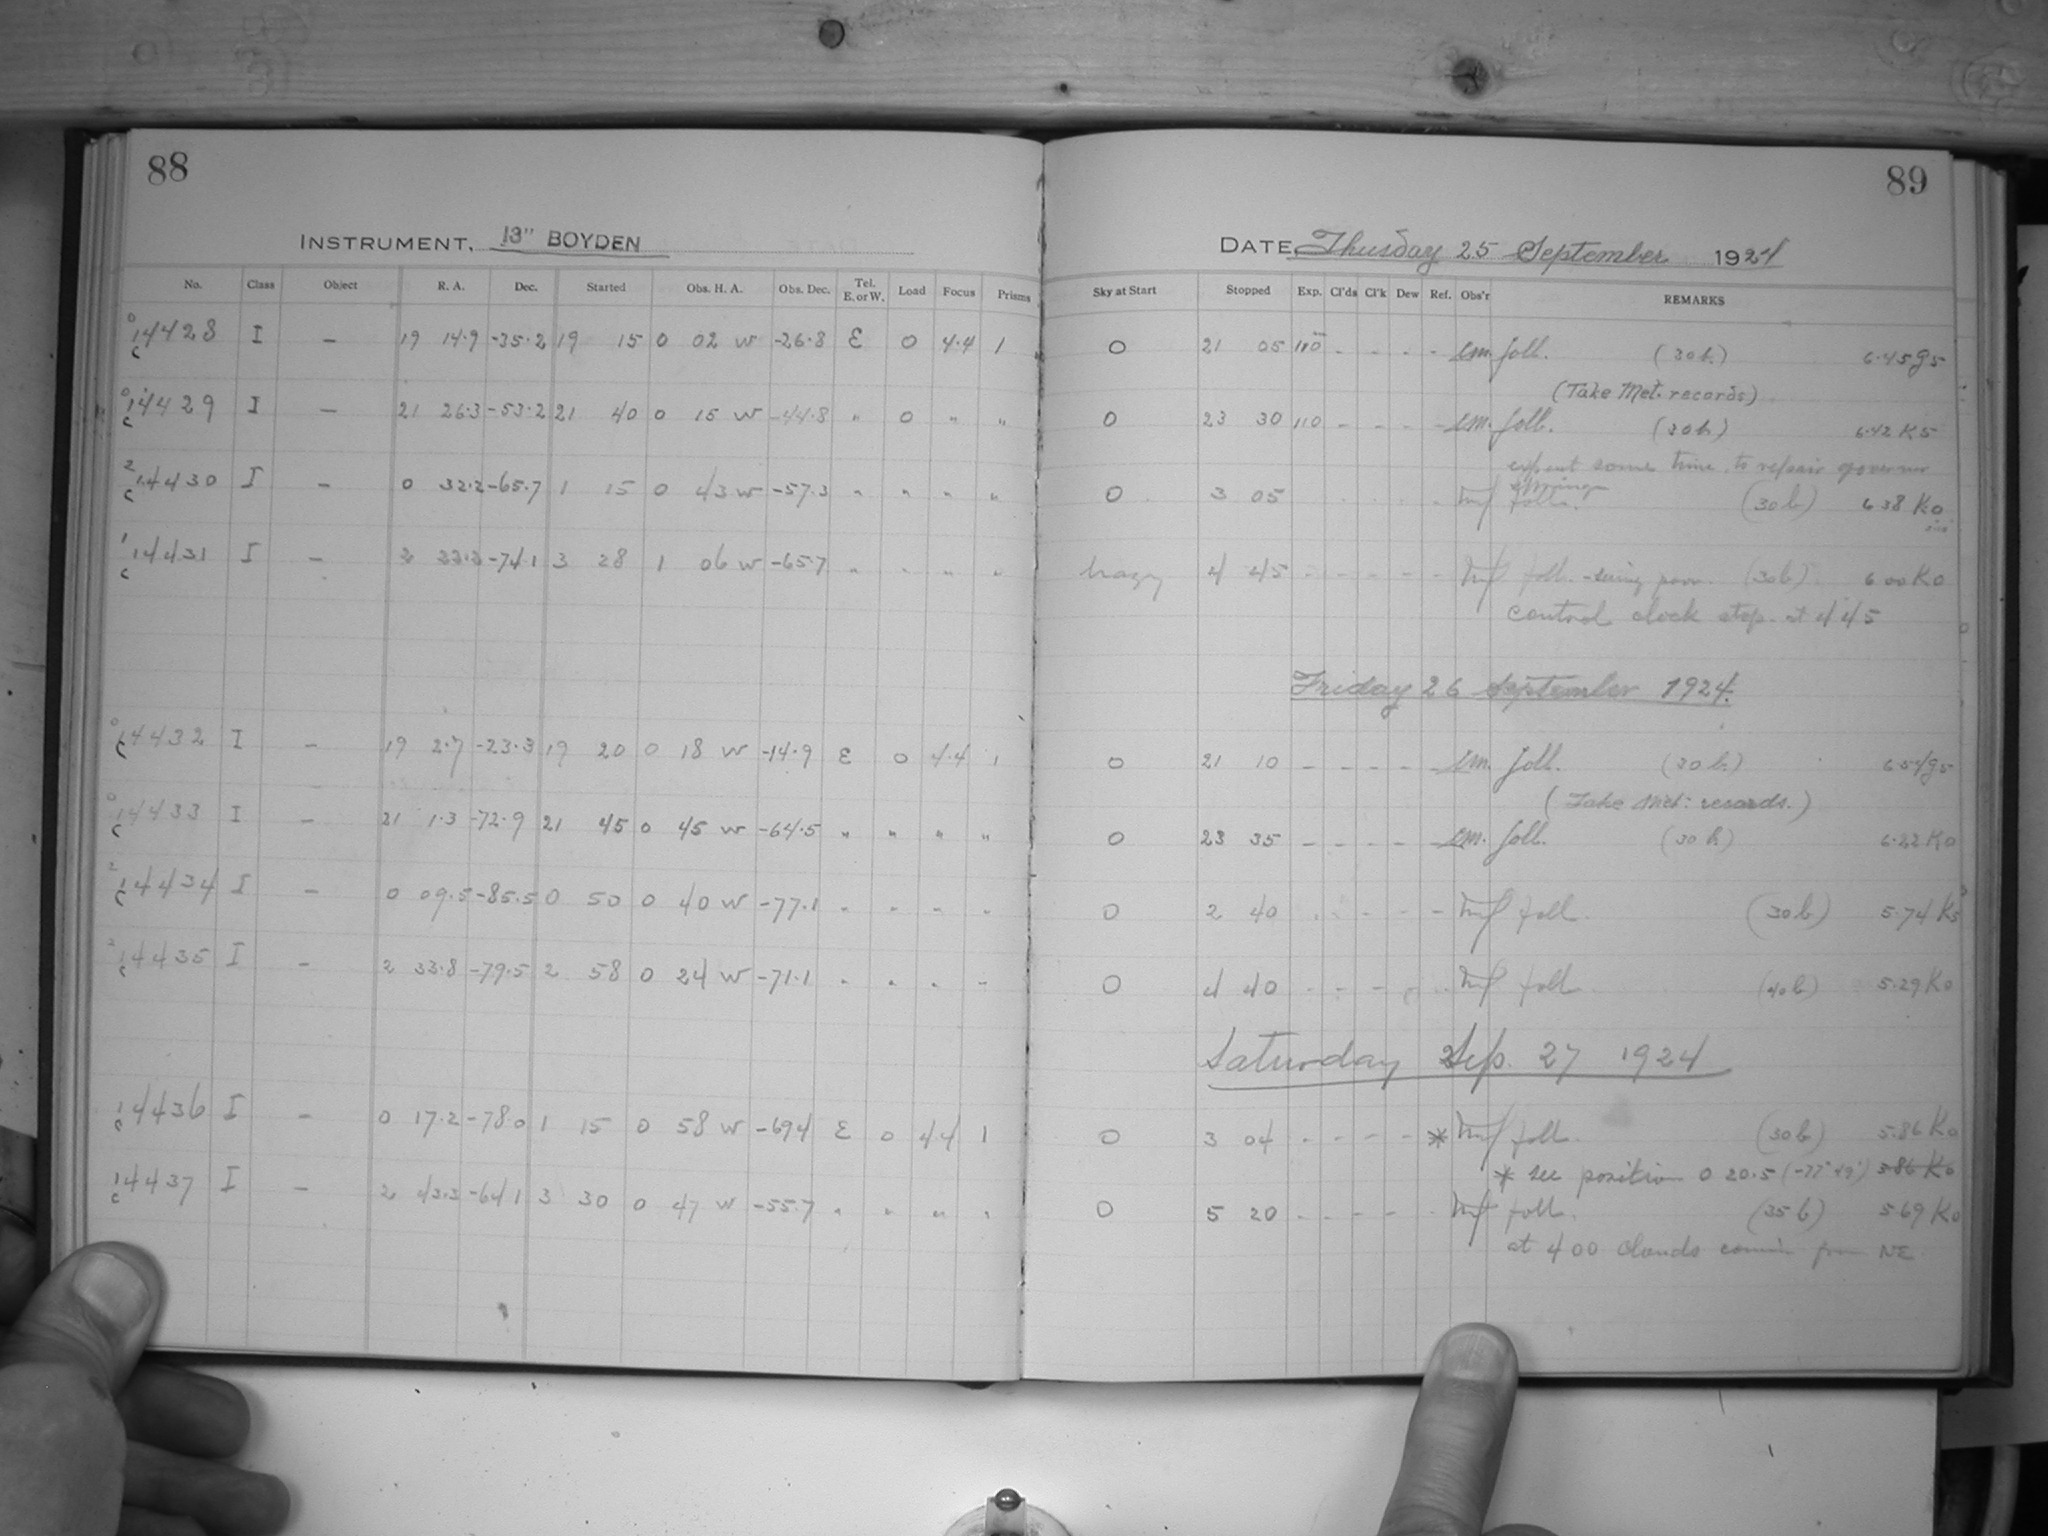 88
INSTRUMENT, 13" BOYDEN
No. Class Object R. A. Dec. Started Obs. H. A. Obs. Dec. Tel. E. or W. Load Focus Prisms
0 14428 c I – 19 14.9 -35.2 19 15 0 02 W -26.8 E 0 4.4 1
0 14429 c I – 21 26.3 -53.2 21 40 0 15 W -44.8 " 0 " "
2 14430 c I – 0 32.2 -65.7 1 15 0 43 W -57.3 " " " "
1 14431 c I – 2 -74.1 3 28 1 06 W -65.7 " " " "
0 14432 c I – 19 2.7 -23.3 19 20 0 18 W -14.9 E 0 4.4 1
0 14433 c I – 21 1.3 -72.9 21 45 0 45 W -64.5 " " " "
2 14434 c I – 0 09.5 -85.5 0 50 0 40 W -77.1 " " " "
2 14435 c I – 2 33.8 -79.5 2 58 0 24 W -71.1 " " " "
1 14436 c I – 0 17.2 -78.0 1 15 0 58 W -69.4 E 0 4.4 1
14437 c I – 2 43.3 -64.1 3 30 0 47 W -55.7 " " " "
89
DATE Thusday 25 September 1924
Sky at Start Stopped Exp. Cl'ds Cl'k Dew Ref. Obs'r REMARKS
0 21 05 110 - - - - foll. (30 b.) 6.45 g5
(Take Met. records)
0 23 30 110 - - - - foll. (30 b.) 6.42 K5
some time to repair governor
springs
0 3 05 foll. (30 b) 6.38 K0
hazy 4 45 - - - - - foll. - seeing poor. (30 b) 6.00 K0
control clock stop. at 4 45
Friday 26 September 1924.
0 21 10 - - - - - foll. (30 b.) 6.54 g5
(Take Met: records.)
0 23 35 - - - - - foll. (30 b) 6.22 K0
0 2 40 - - - - - foll. (30 b) 5.74 K5
0 4 40 - - - - foll. (40 b) 5.29 K0
Saturday Sep. 27 1924
0 3 04 - - - - * foll. (30 b) 5.86 K0
* see position 0 20.5 (-77° 49') 5.86 K0
0 5 20 - - - - - foll. (35 b) 5.69 K0
at 4 00 clouds comin from NE